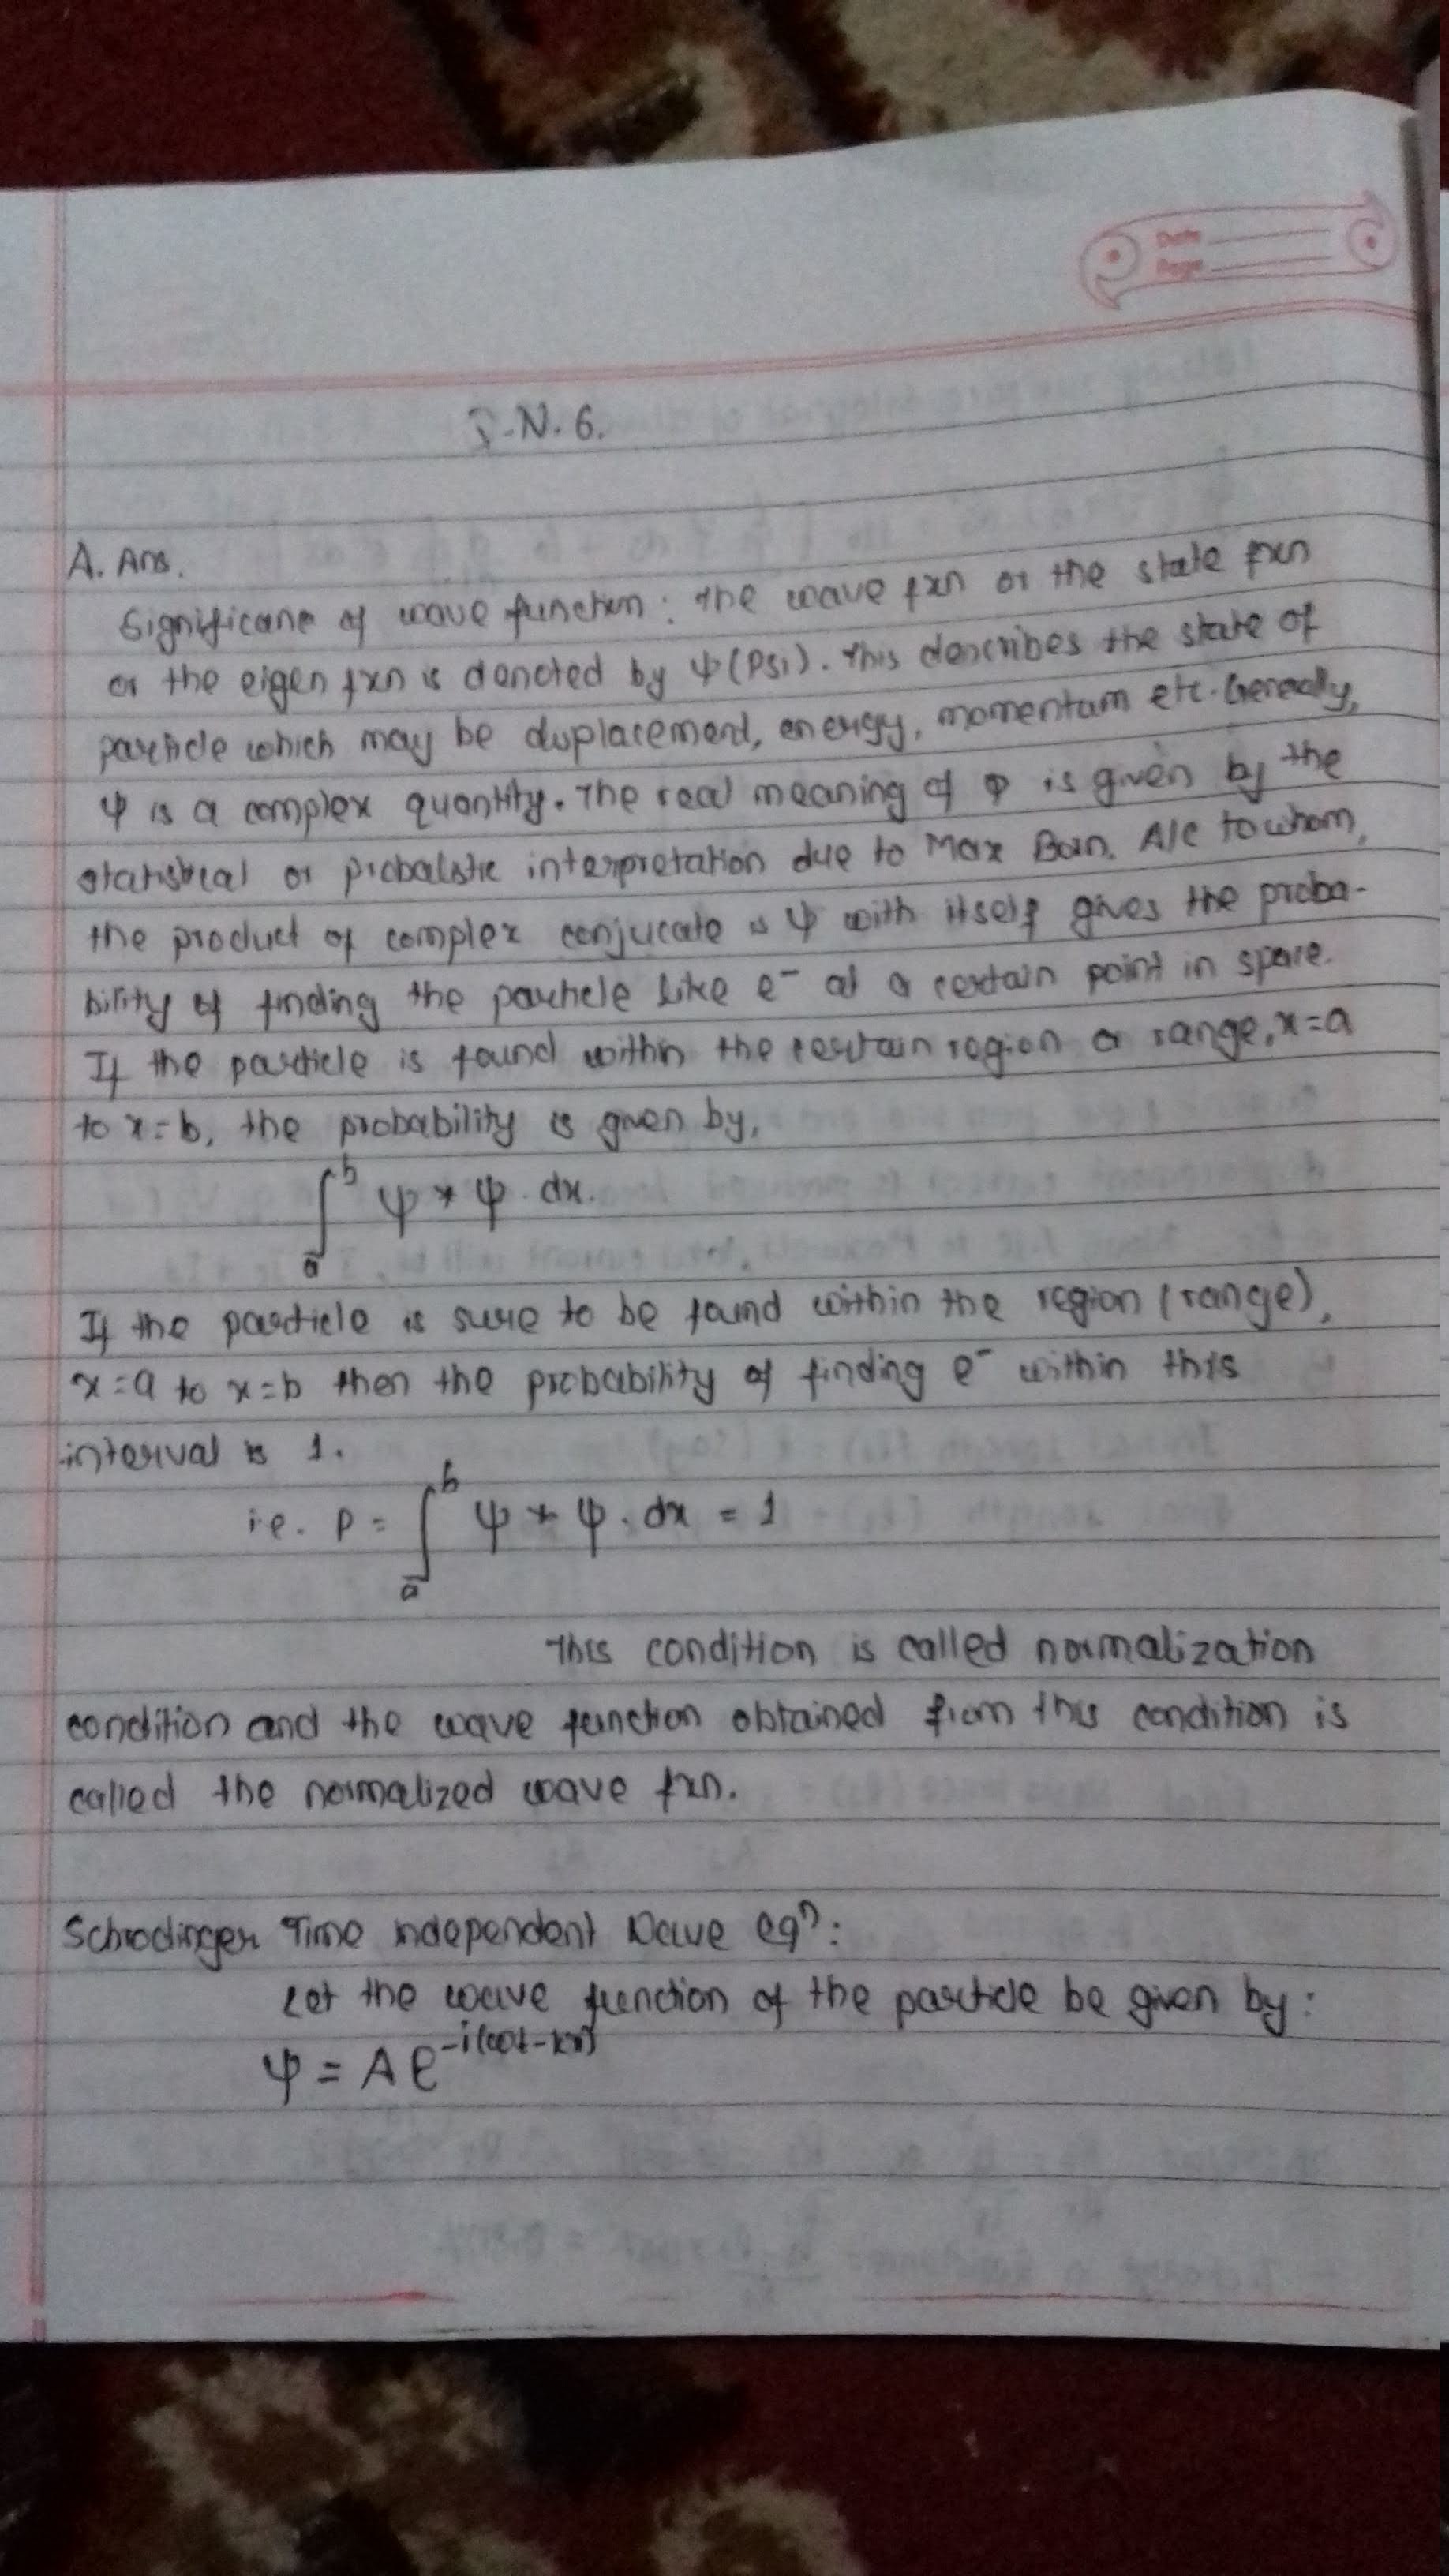 Date
Page
Q.N.6.
A. Ans.
Significane of wave function: The wave fxn or the state fxn
or the eigen fxn is denoted by ψ (Psi). This describes the state of
particle which may be displacement, energy, momentum etc. Generally,
ψ is a complex quantity. The real meaning of ψ is given by the
statistical or probalistic interpretation due to Max Born. A/c to whom,
the product of complex conjucate is ψ with itself gives the proba-
bility of finding the particle like e⁻ at a certain point in space.
If the particle is found within the certain region or range, x=a
to x=b, the probability is given by,
∫ₐᵇ ψ * ψ . dx.
If the particle is sure to be found within the region (range),
x=a to x=b then the probability of finding e⁻ within this
interval is 1.
i.e. P = ∫ₐᵇ ψ * ψ . dx = 1
This condition is called normalization
condition and the wave function obtained from this condition is
called the normalized wave fxn.
Schrodinger Time independent Wave eqⁿ:
Let the wave function of the particle be given by:
ψ = A e^-i(ωt-kx)